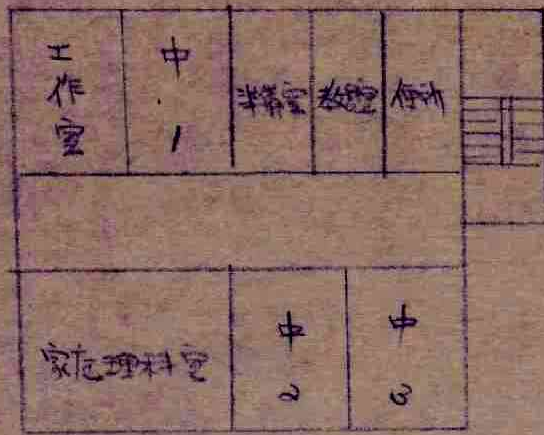 工作室
中・1
準備室
教室
便所
家庭理科室
中2
中3